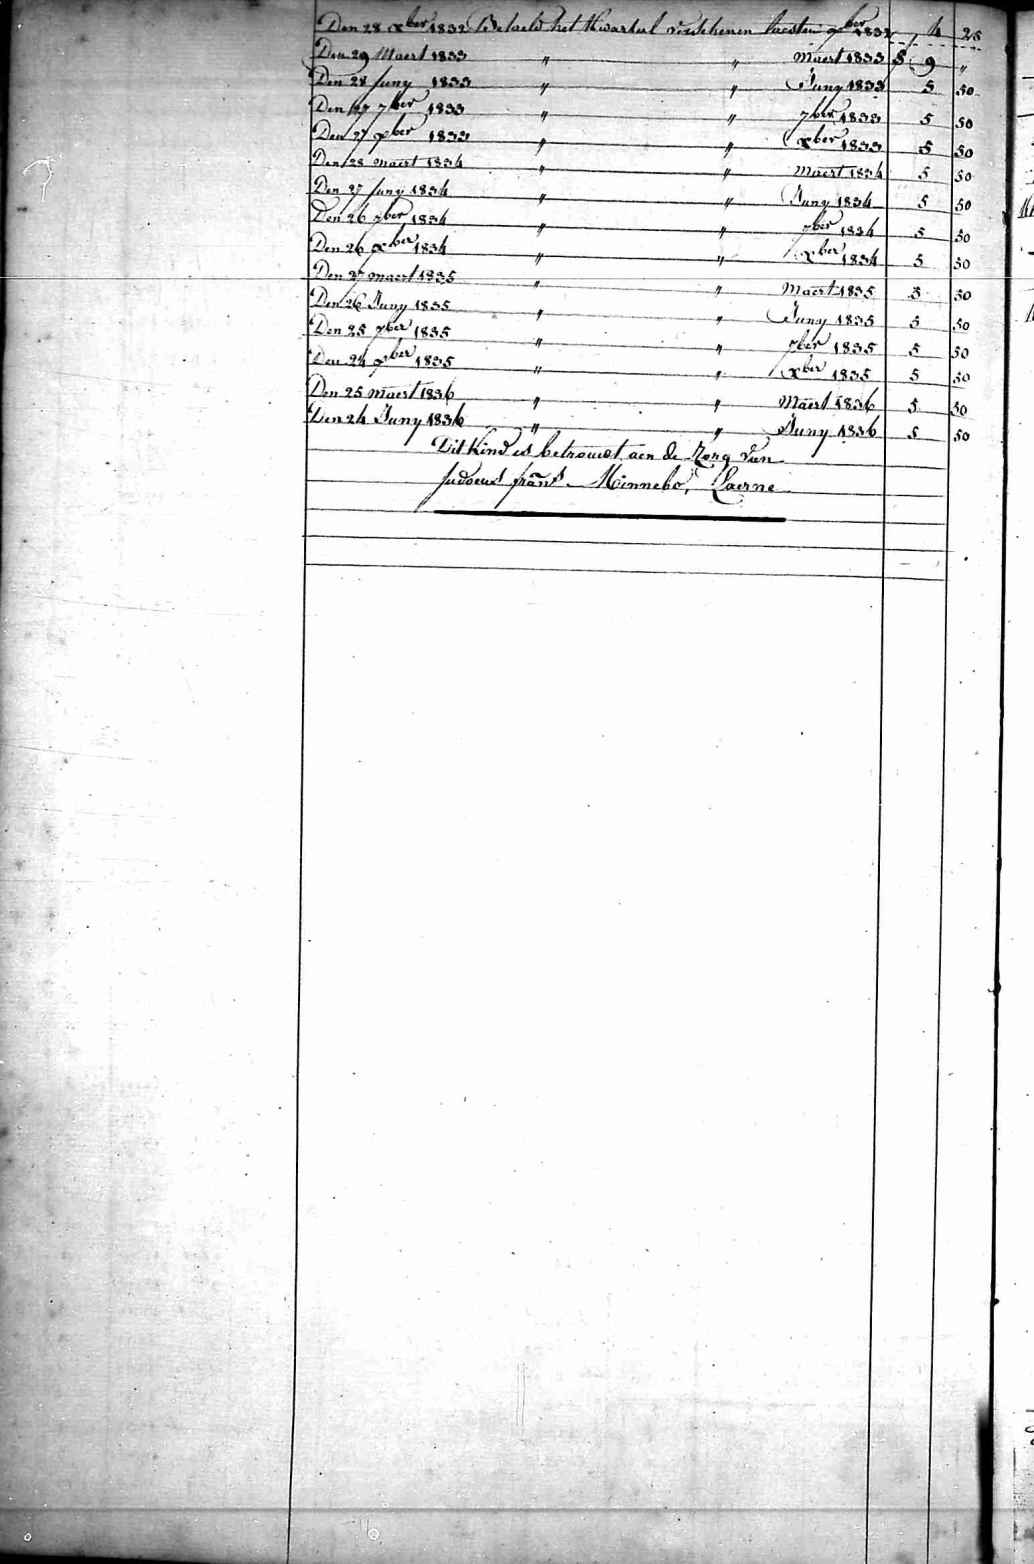 Den 28 xber 1832 Betaeld het Kwartael verschenen laesten 9ber 1832 4 25
Den 29 Maert 1833 " " Maert 1833 9 "
Den 28 Juny 1833 " " Juny 1833 5 50
Den 27 7ber 1833 " " 7ber 1833 5 50
Den 27 xber 1833 " " xber 1833 5 50
Den 28 maert 1834 " " Maert 1834 5 50
Den 27 Juny 1834 " " Juny 1834 5 50
Den 26 7ber 1834 " " 7ber 1834 5 50
Den 26 xber 1834 " " xber 1834 5 50
Den 27 maert 1835 " " Maert 1835 5 50
Den 26 Juny 1835 " " Juny 1835 5 50
Den 25 7ber 1835 " " 7ber 1835 5 50
Den 24 xber 1835 " " xber 1835 5 50
Den 25 Maert 1836 " " Maert 1836 5 50
Den 24 Juny 1836 " " Juny 1836 5 50
Dit Kind is betrouwt aen de Zorg van
Judocus frans Minnebo, Laerne